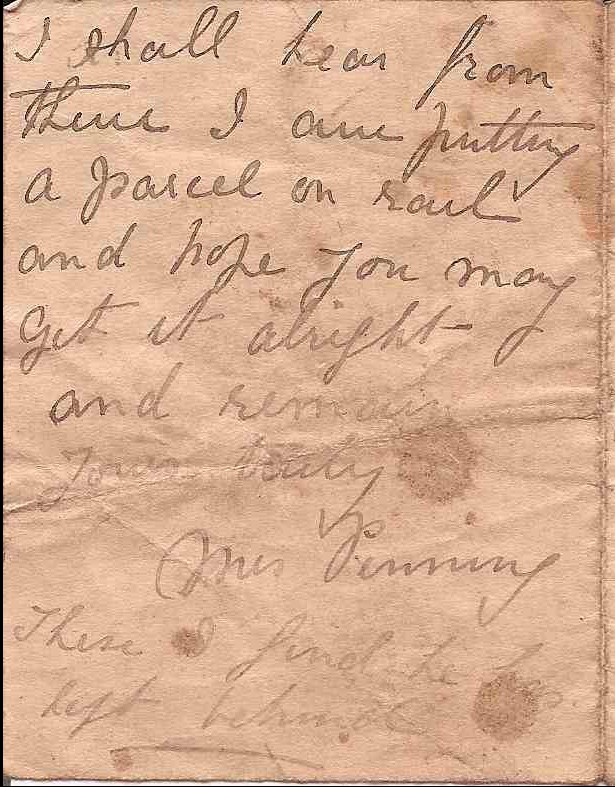 I shall hear from
there I am putting
a parcel on rail
and hope you may
get it alright
and remain
yours truly
Mrs Penning
These I find he has
left behind